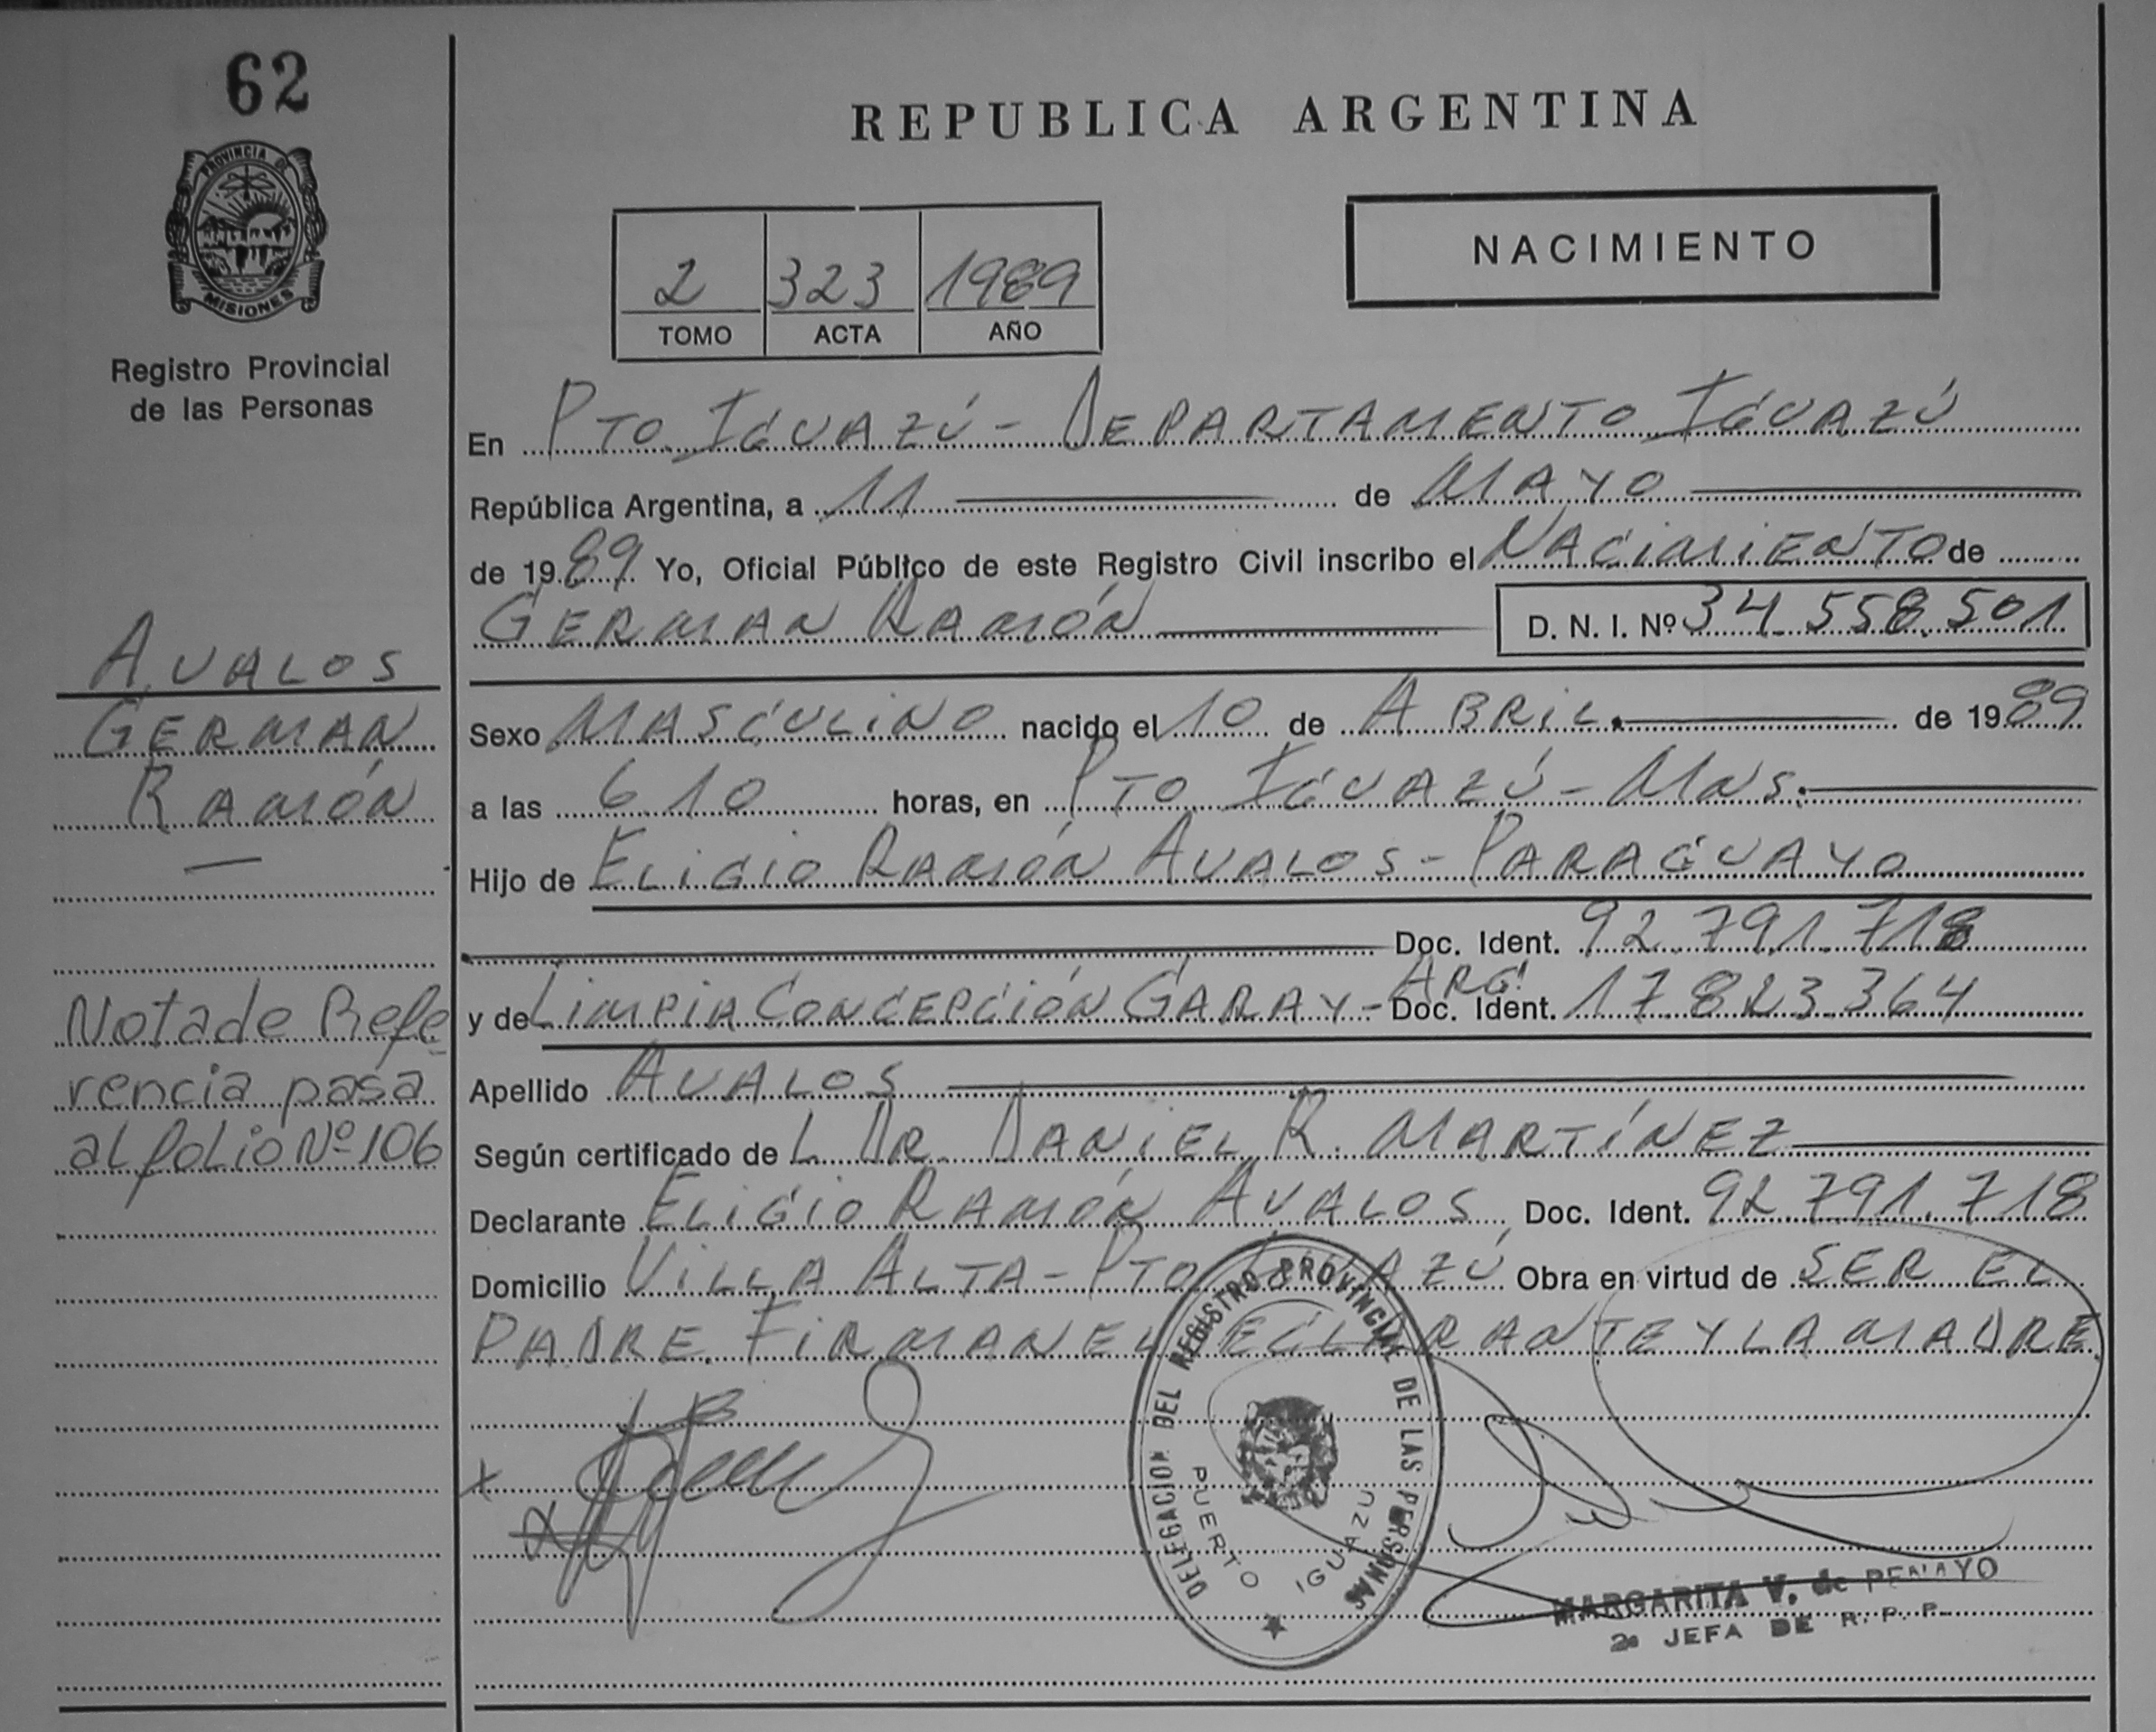 62
PROVINCIA DE
MISIONES
Registro Provincial
de las Personas
AVALOS
GERMAN
RAMÓN
Nota de Refe
rencia pasa
al folio Nº 106
REPUBLICA ARGENTINA
2 323 1989
TOMO ACTA AÑO
NACIMIENTO
En PTO. IGUAZÚ - DEPARTAMENTO IGUAZÚ
República Argentina, a 11 de MAYO
de 1989 Yo, Oficial Público de este Registro Civil inscribo el NACIMIENTO de
GERMAN RAMÓN D. N. I. Nº 34.558.501
Sexo MASCULINO nacido el 10 de ABRIL. de 1989
a las 6 10 horas, en PTO IGUAZÚ - MNS.
Hijo de ELIGIO RAMÓN AVALOS - PARAGUAYO
Doc. Ident. 92.791.718
y de LIMPIA CONCEPCIÓN GARAY - ARG. Doc. Ident. 17 823.364
Apellido AVALOS
Según certificado de L DR. DANIEL R. MARTÍNEZ
Declarante ELIGIO RAMÓN AVALOS Doc. Ident. 92.791.718
Domicilio VILLA ALTA - PTO IGUAZÚ Obra en virtud de SER EL
PADRE. FIRMAN EL DECLARANTE Y LA MADRE.
DELEGACION DEL REGISTRO PROVINCIAL DE LAS PERSONAS
PUERTO IGUAZU
MARGARITA V. de PENAYO
2a JEFA DE R. P. P.